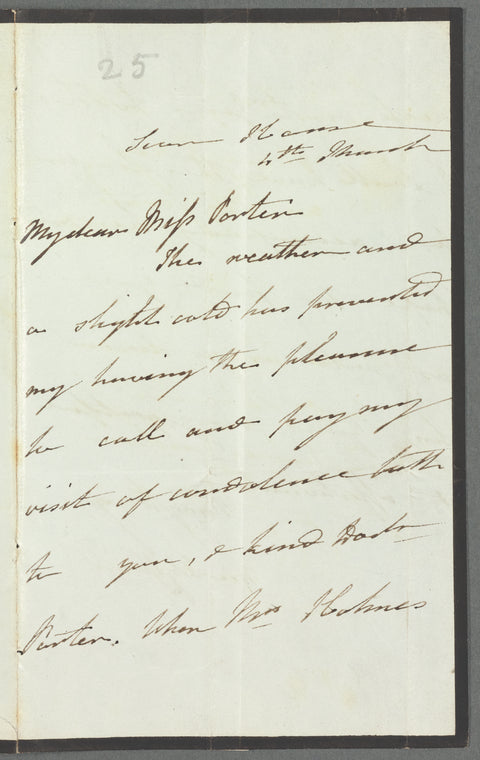 25
House
4th March
My dear Miss Porter
The weather and
a slight cold has prevented
my having the pleasure
to call and pay my
visit of condolence both
to you, & kind Doctr
Porter. When Mrs Holmes